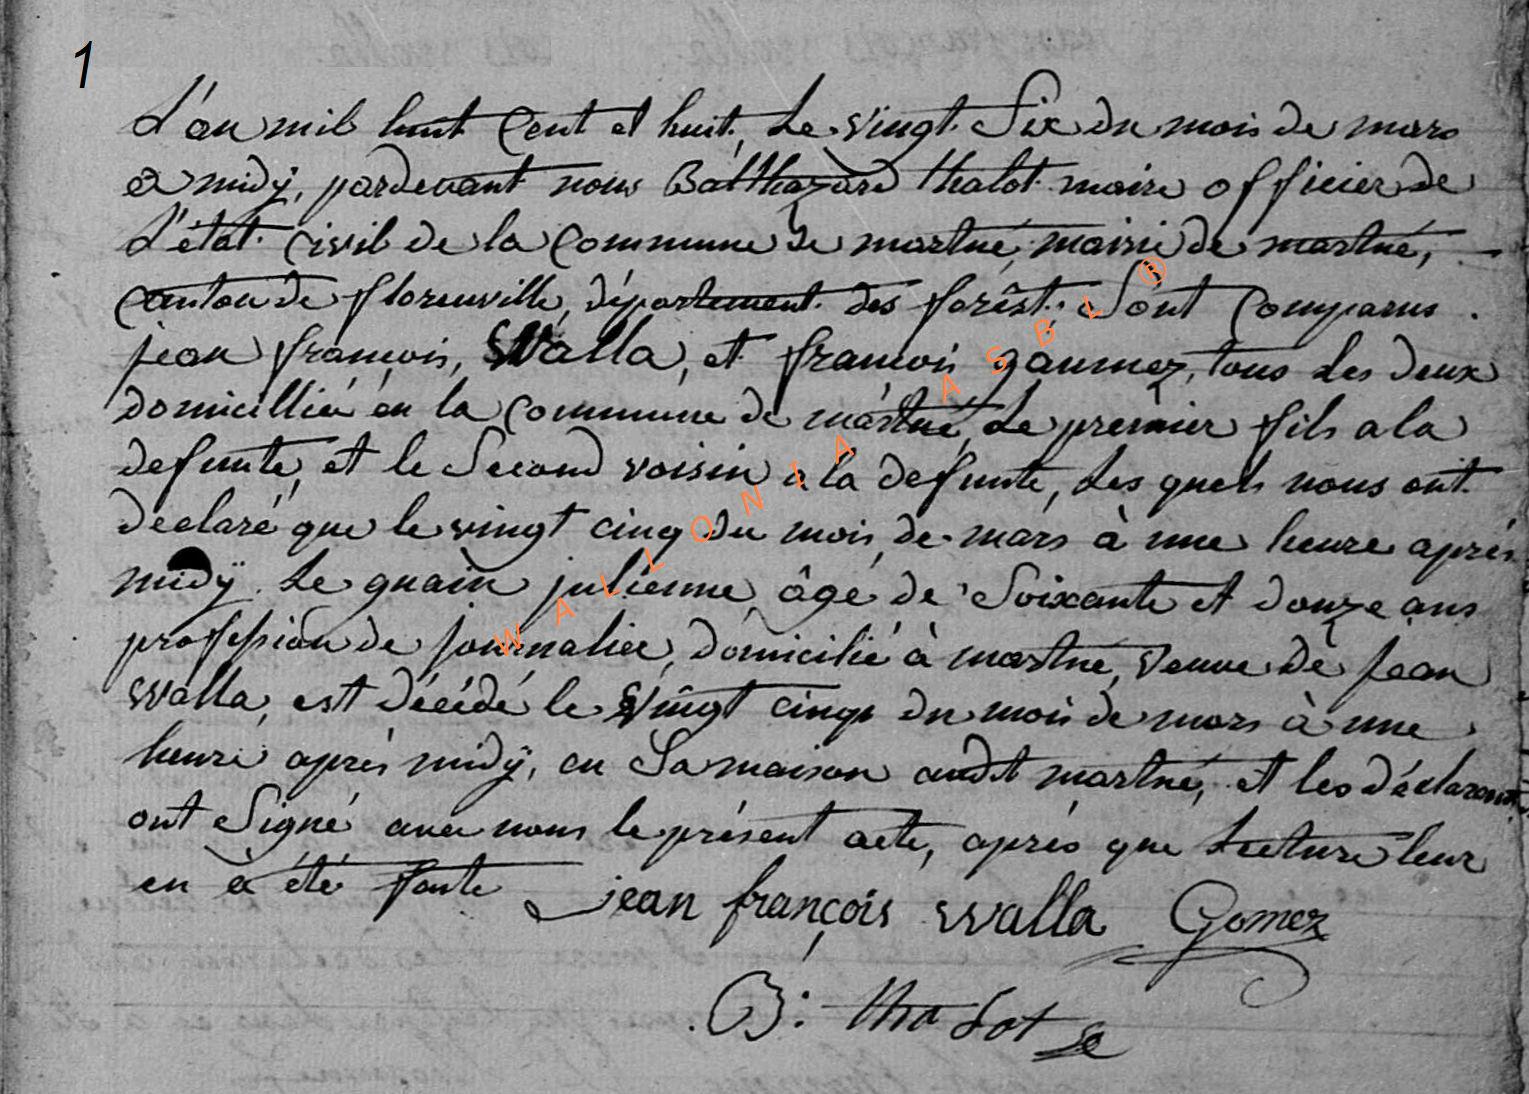 1
L'an mil huit Cent et huit, Le vingt Six du mois de mars
a midÿ, pardevant nous Balthazard thalot maire officier de
L'état Civil de la Commune de martué, mairie de martué,
Canton de florenville, département des forêst, Sont Comparus
jean françois, Walla, et françois gaumez, tous Les deux
domicillié en la Commune de martué, Le premier fils a la
defunte, et le Second voisin a la defunte, Les quels nous ont
declaré que le vingt cinq du mois de mars à une heure aprés
midÿ Le guain julienne âgé de Soixante et douze ans
profession de journalier, domicilié à martué, veuve de Jean
Walla, est décédé le vingt cinq du mois de mars à une
heure aprés midÿ, en Sa maison audit martué, et les déclarant
ont Signé avec nous le présent acte, aprés que Lecture leur
en à été faite jean françois Walla Gomez
B: thalot
WALLONIA ASBL ®